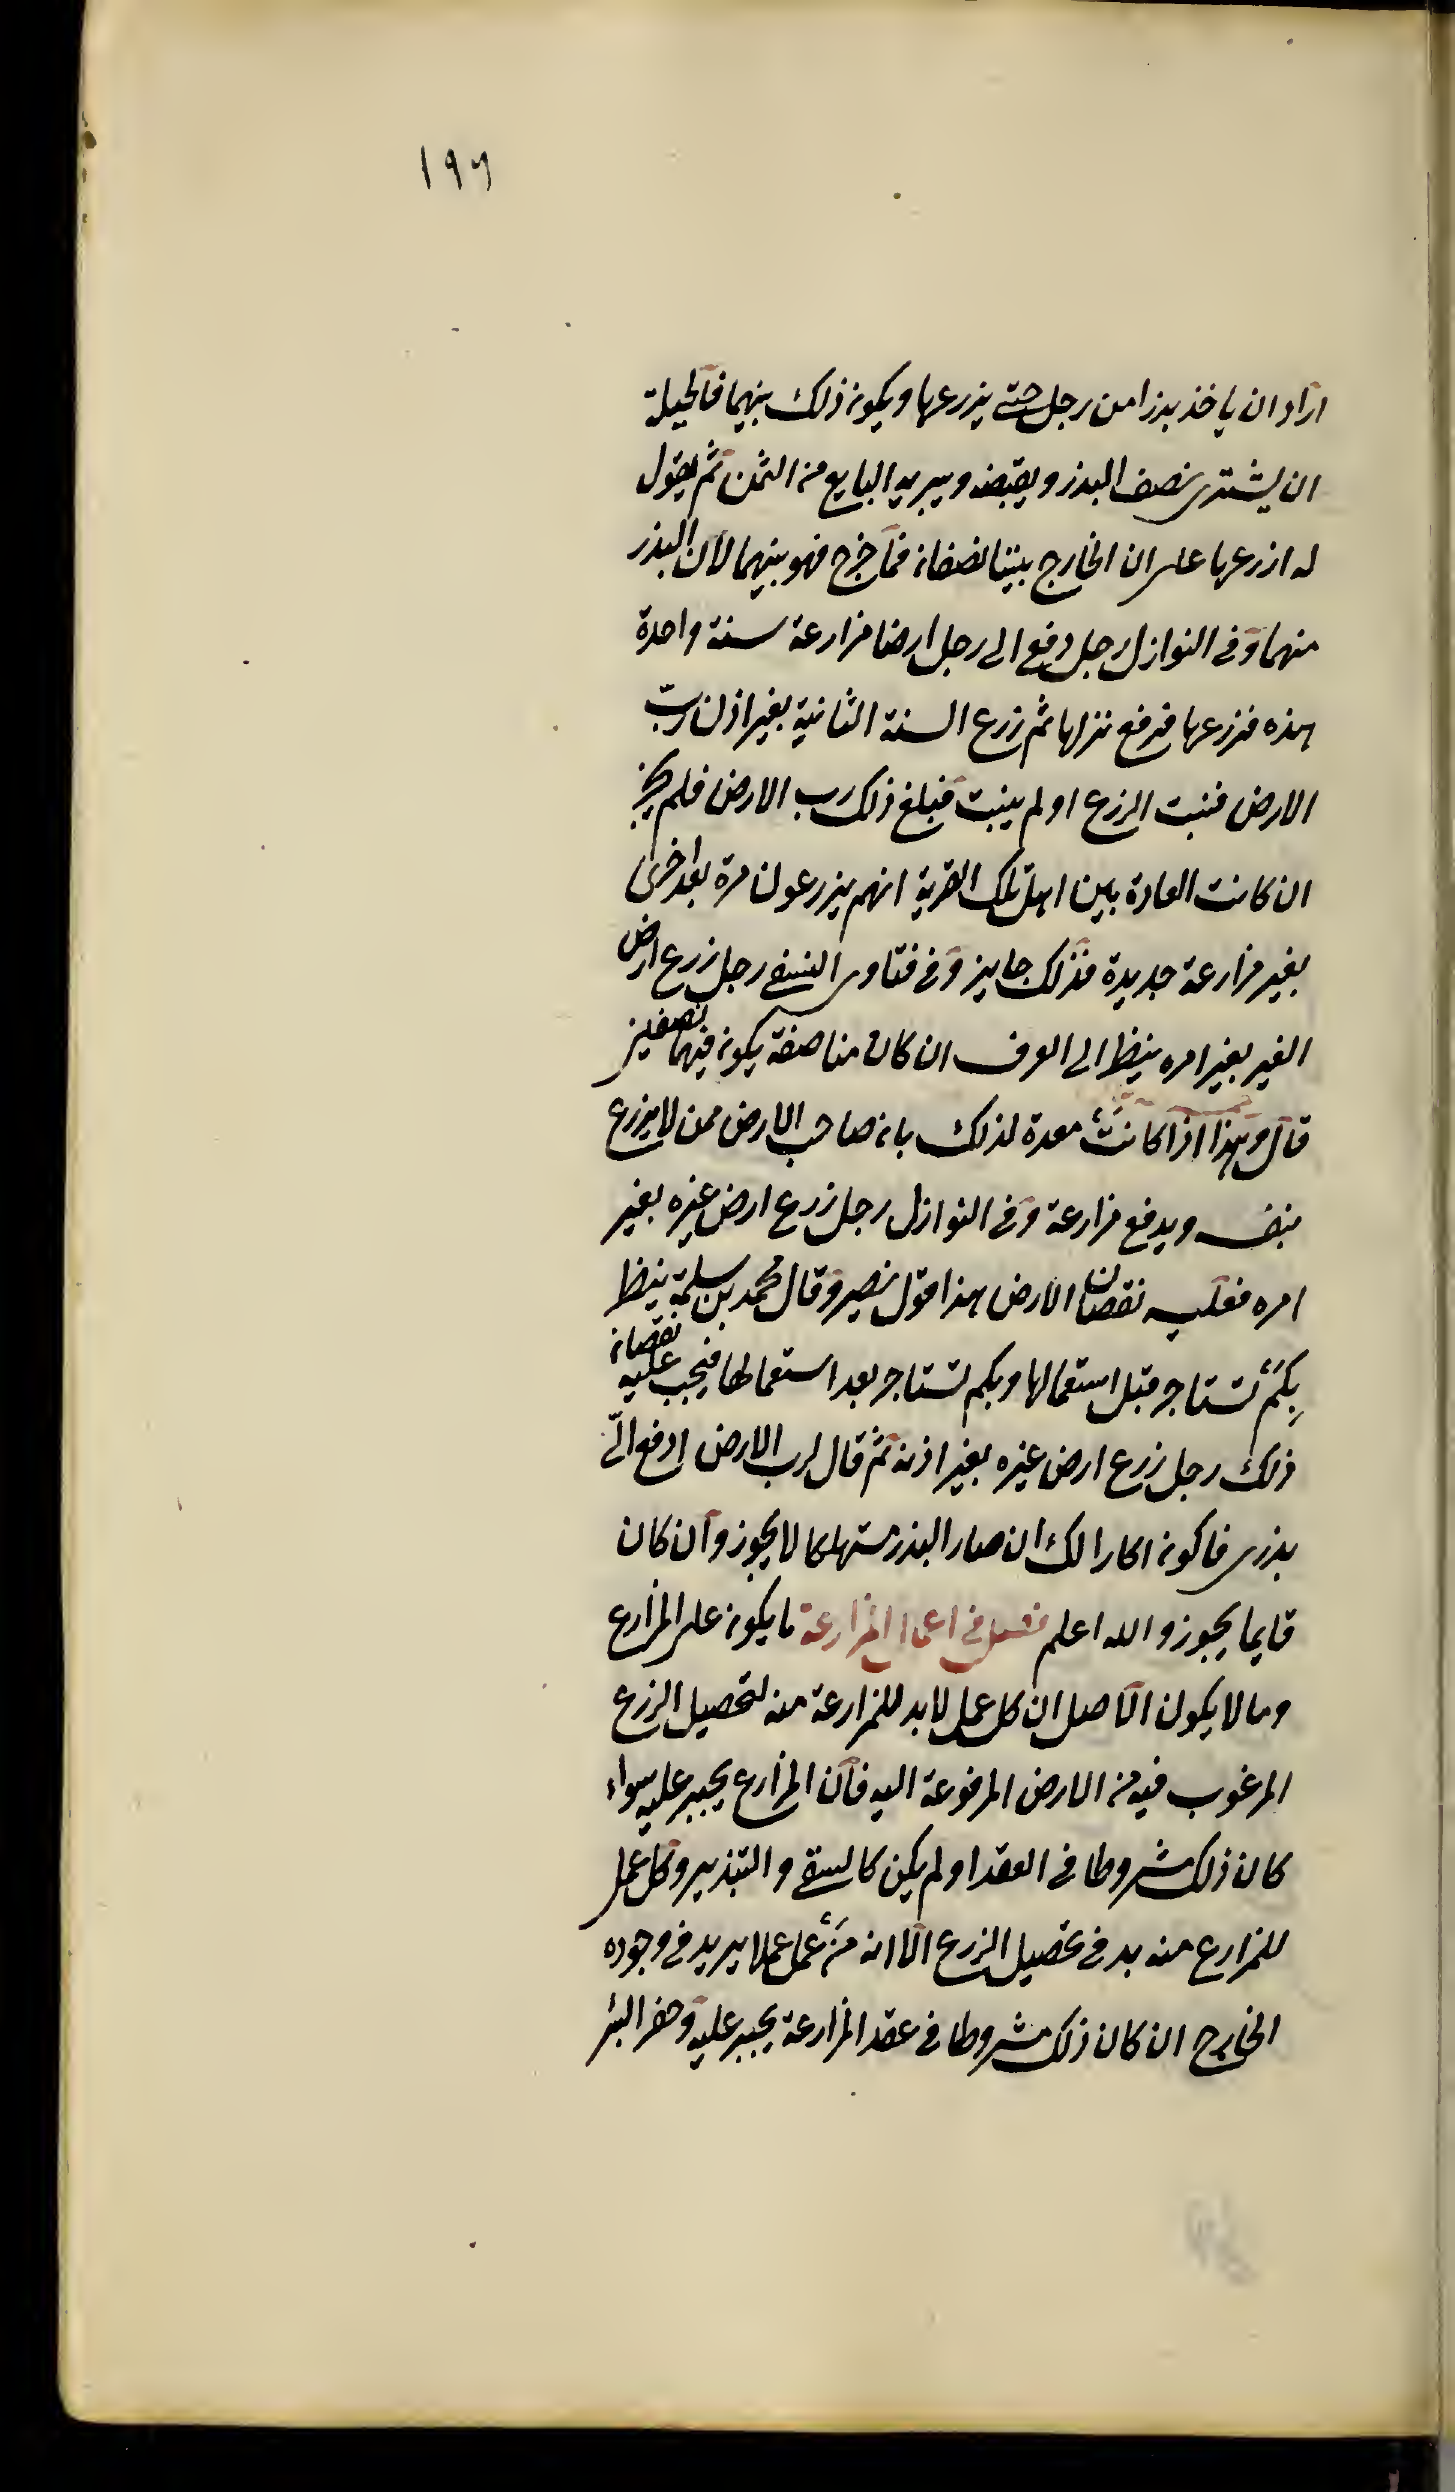 ١٩٦
اراد ان ياخذ بذرا من رجل حتى يزرعها ويكون ذلك بينهما فالحيلة
ان يشترى نصف البذر ويقبضه ويبريه البايع من الثمن ثم يقول
له ازرعها على ان الخارج بيننا نصفان فما خرج فهو بينهما لان البذر
منهما وفى النوازل رجل دفع الى رجل ارضا مزارعة سنة واحدة
هذه فزرعها فرفع نزلها ثم زرع السنة الثانية بغير اذن ربّ
الارض فنبت الزرع او لم ينبت فبلغ ذلك رب الارض فلم يجز
ان كانت العادة بين اهل تلك القرية انهم يزرعون مرة بعد اخرى
بغير مزارعة جديدة فذلك جايز وفى فتاوى النسفى رجل زرع ارض
الغير بغير امره ينظر الى العرف ان كان مناصفة يكون فيهما نصفين
قال وهذا اذا كانت معدة لذلك بان صاحب الارض ممن لا يزرع
بنفسه ويدفع مزارعة وفى النوازل رجل زرع ارض غيره بغير
امره فعليه نقصان الارض هذا قول نصير وقال محمد بن سلمة ينظر
بِكَمْ تستاجر قبل استعمالها وبكم تستاجر بعد استعمالها فيجب عليه نقصان
ذلك رجل زرع ارض غيره بغير اذنه ثم قال لرب الارض ادفع الىّ
بذرى فاكون اكارا لك ان صار البذر مستهلكا لا يجوز وان كان
قايما يجوز والله اعلم فصل فى اعمال المزارعة ما يكون على المزارع
وما لا يكون الاصل ان كل عمل لا بد للمزارعة منه لتحصيل الزرع
المرغوب فيه من الارض المدفوعة اليه فان المزارع يجبر عليه سواء
كان ذلك مشروطا فى العقد او لم يكن كالسقى والتبذير وكل عمل
للمزارع منه بد فى تحصيل الزرع الا انه مَنْ عمل عملا يريد فى وجوده
الخارج ان كان ذلك مشروطا فى عقد المزارعة يجبر عليه وحفر البئر